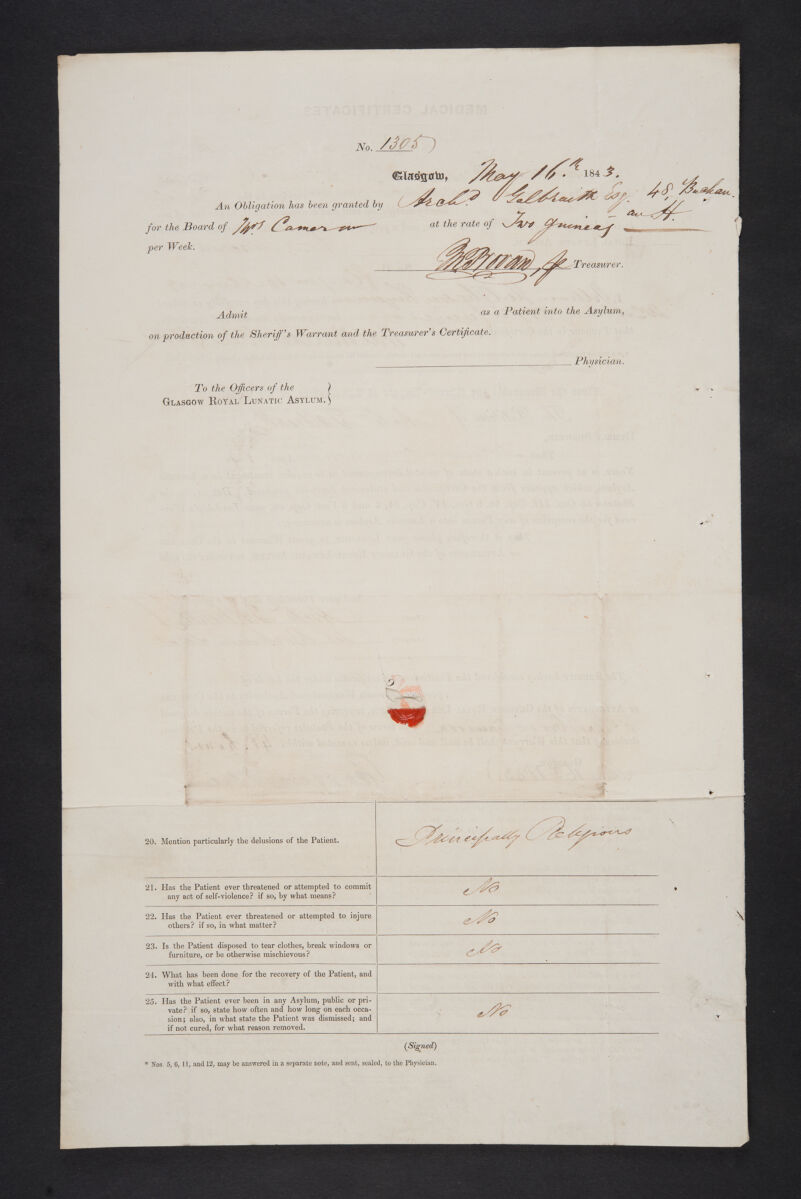 No. 1305
Glasgow, May 16.th 1843.
An Obligation has been granted by Archd Galbraith Esq. 48, Buchan-
an St.
for the Board of Mrs Cameron at the rate of Two Guineas
per Week.
Treasurer.
Admit as a Patient into the Asylum,
on production of the Sheriff's Warrant and the Treasurer's Certificate.
Physician.
To the Officers of the
Glasgow Royal Lunatic Asylum.
20. Mention particularly the delusions of the Patient. Principally Religious
21. Has the Patient ever threatened or attempted to commit
any act of self-violence? if so, by what means? No
22. Has the Patient ever threatened or attempted to injure
others? if so, in what matter? No
23. Is the Patient disposed to tear clothes, break windows or
furniture, or be otherwise mischievous? No
24. What has been done for the recovery of the Patient, and
with what effect?
25. Has the Patient ever been in any Asylum, public or pri-
vate? if so, state how often and how long on each occa-
sion; also, in what state the Patient was dismissed; and
if not cured, for what reason removed. No
(Signed)
* Nos. 5, 6, 11, and 12, may be answered in a separate note, and sent, sealed, to the Physician.